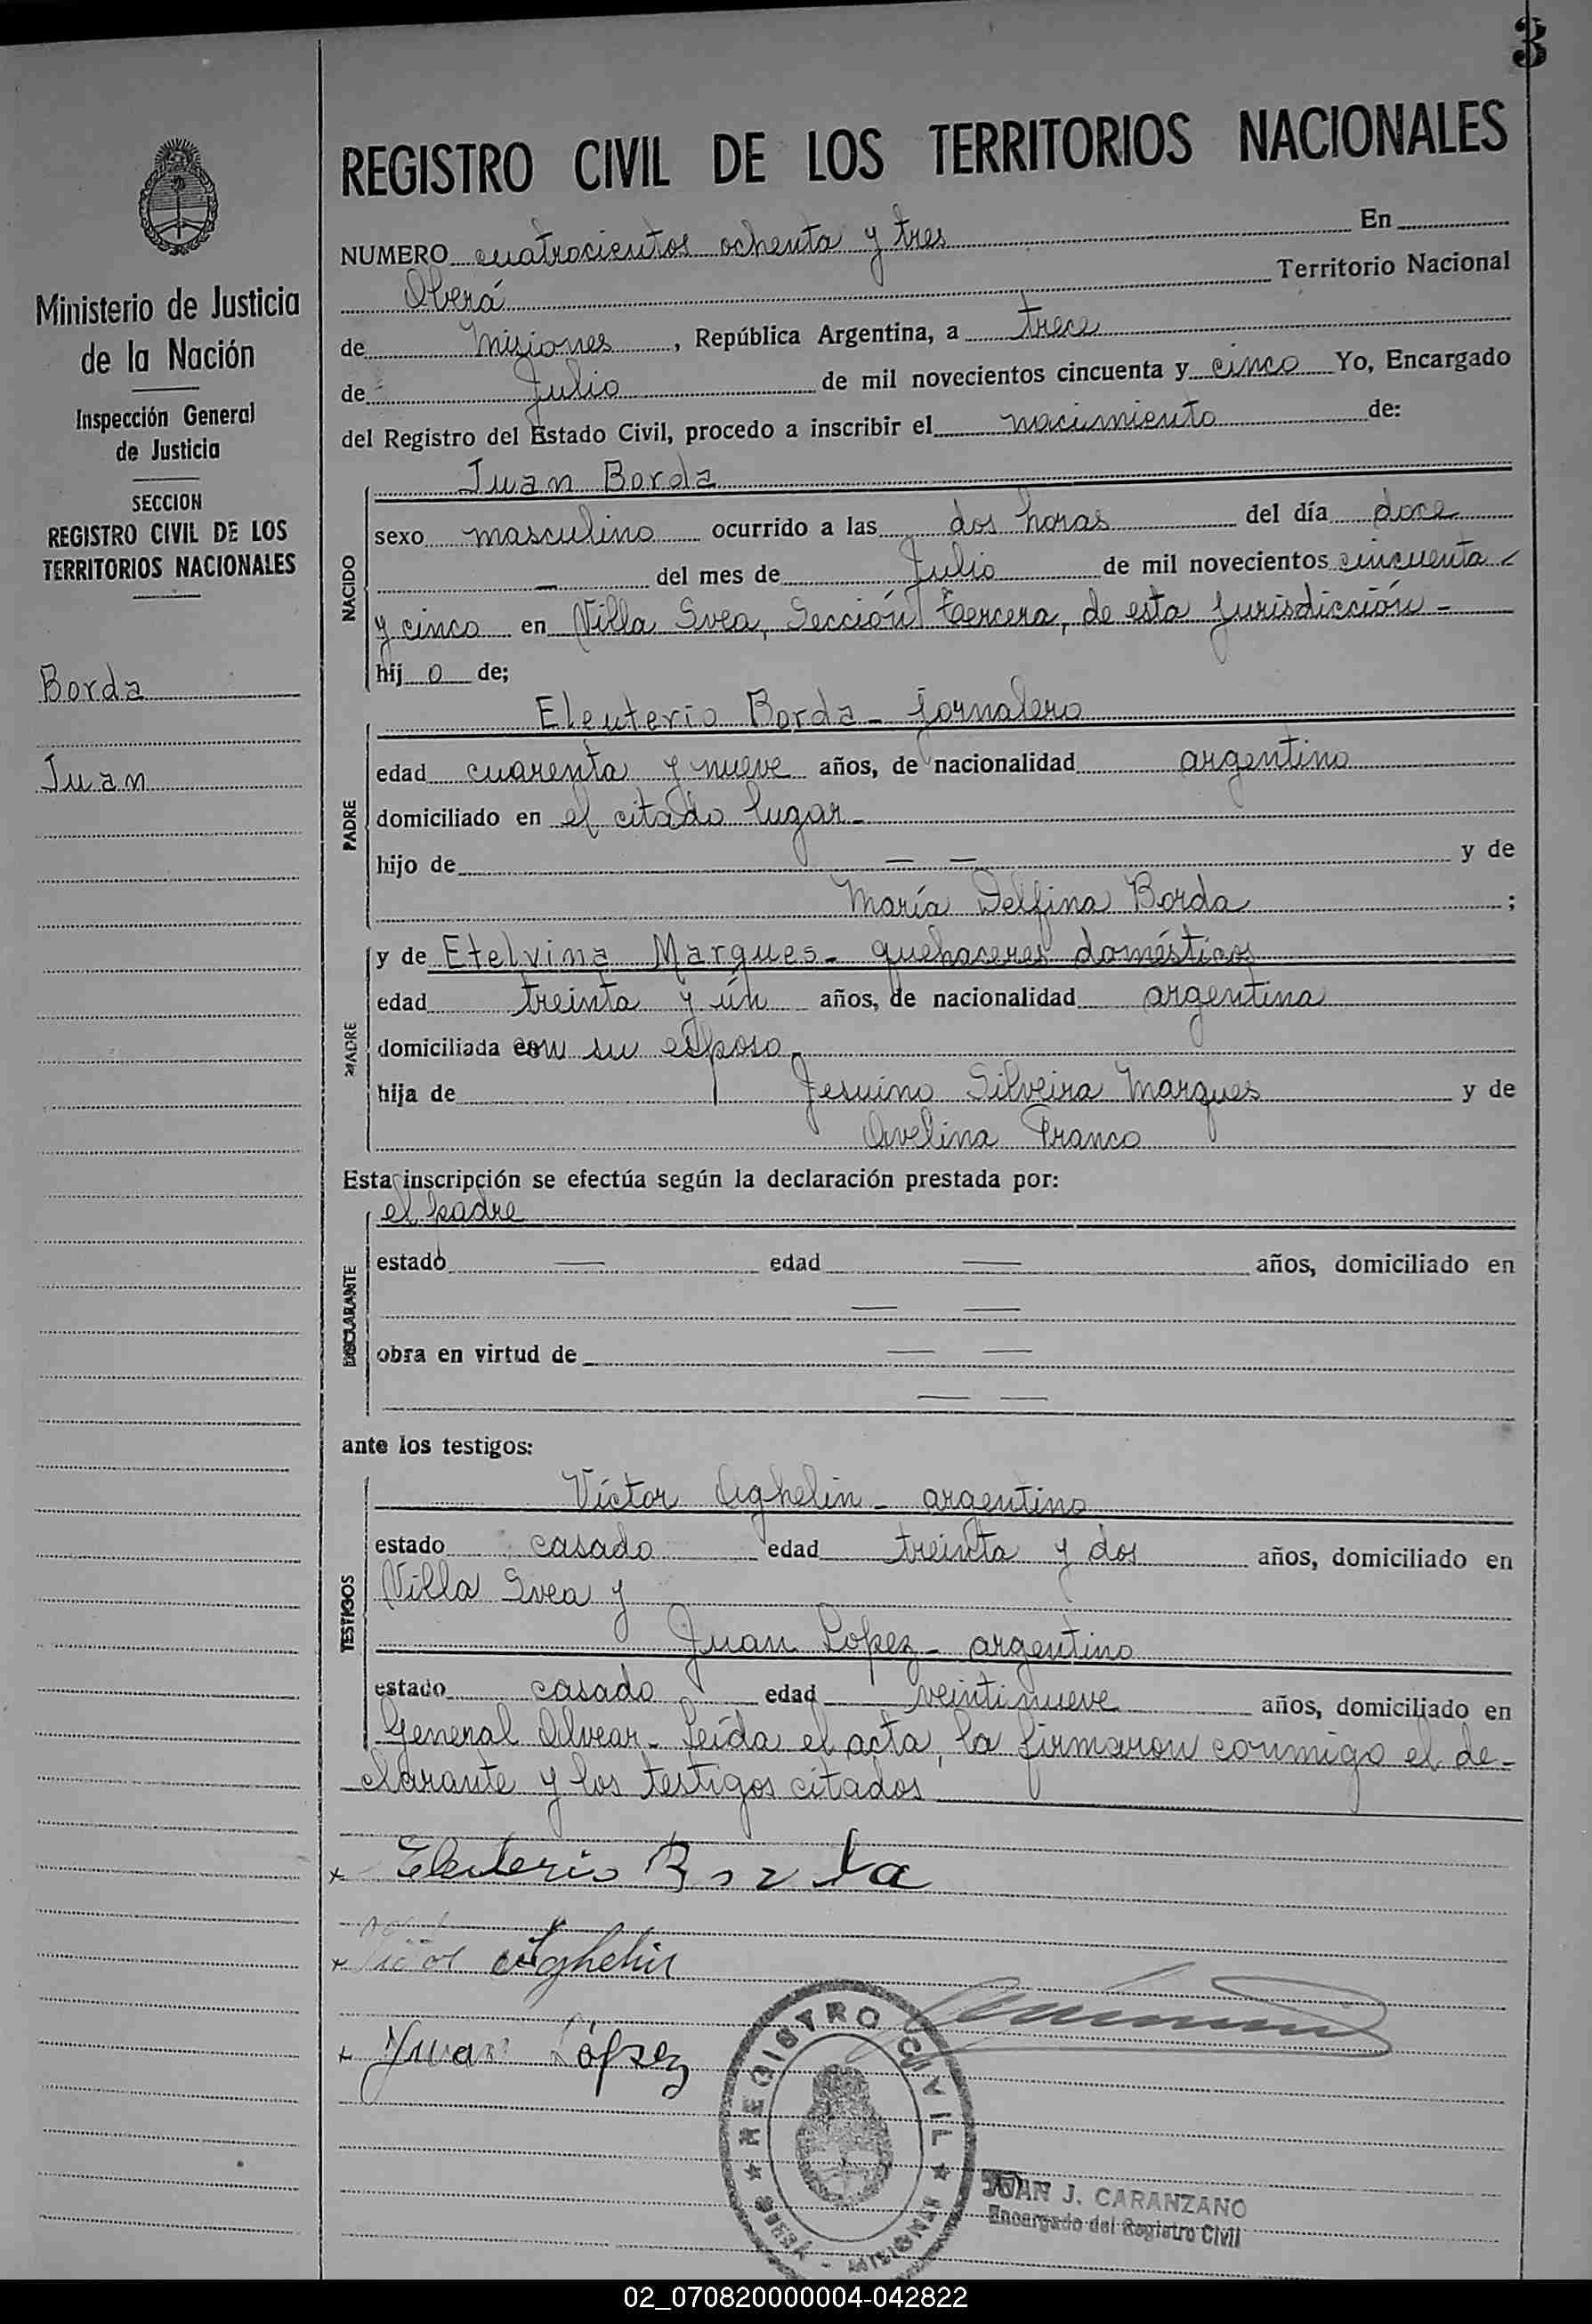 3
REGISTRO CIVIL DE LOS TERRITORIOS NACIONALES
NUMERO cuatrocientos ochenta y tres En
Oberá Territorio Nacional
de Misiones, República Argentina, a trece
de Julio de mil novecientos cincuenta y cinco Yo, Encargado
del Registro del Estado Civil, procedo a inscribir el nacimiento de:
Ministerio de Justicia
de la Nación
Inspección General
de Justicia
SECCION
REGISTRO CIVIL DE LOS
TERRITORIOS NACIONALES
Borda
Juan
NACIDO
Juan Borda
sexo masculino ocurrido a las dos horas del día doce
— del mes de Julio de mil novecientos cincuenta
y cinco en Villa Svea, Sección tercera, de esta jurisdicción -
hij o de;
PADRE
Eleuterio Borda - jornalero
edad cuarenta y nueve años, de nacionalidad argentino
domiciliado en el citado lugar -
hijo de — — y de
María Delfina Borda ;
MADRE
y de Etelvina Marques - quehaceres domésticos
edad treinta y ún años, de nacionalidad argentina
domiciliada con su esposo -
hija de Jesuino Silveira Marques y de
Avelina Franco
Esta inscripción se efectúa según la declaración prestada por:
DECLARANTE
el padre
estado — edad — años, domiciliado en
— —
obra en virtud de — —
— —
ante los testigos:
TESTIGOS
Víctor Aghelin - argentino
estado casado edad treinta y dos años, domiciliado en
Villa Svea y
Juan Lopez - argentino
estado casado edad veintinueve años, domiciliado en
General Alvear - Leída el acta, la firmaron conmigo el de-
clarante y los testigos citados
x Eleuterio Borda
x Victor Aghelin
x Juan López
REGISTRO CIVIL
OBERÁ - MISIONES
JUAN J. CARANZANO
Encargado del Registro Civil
02_070820000004-042822